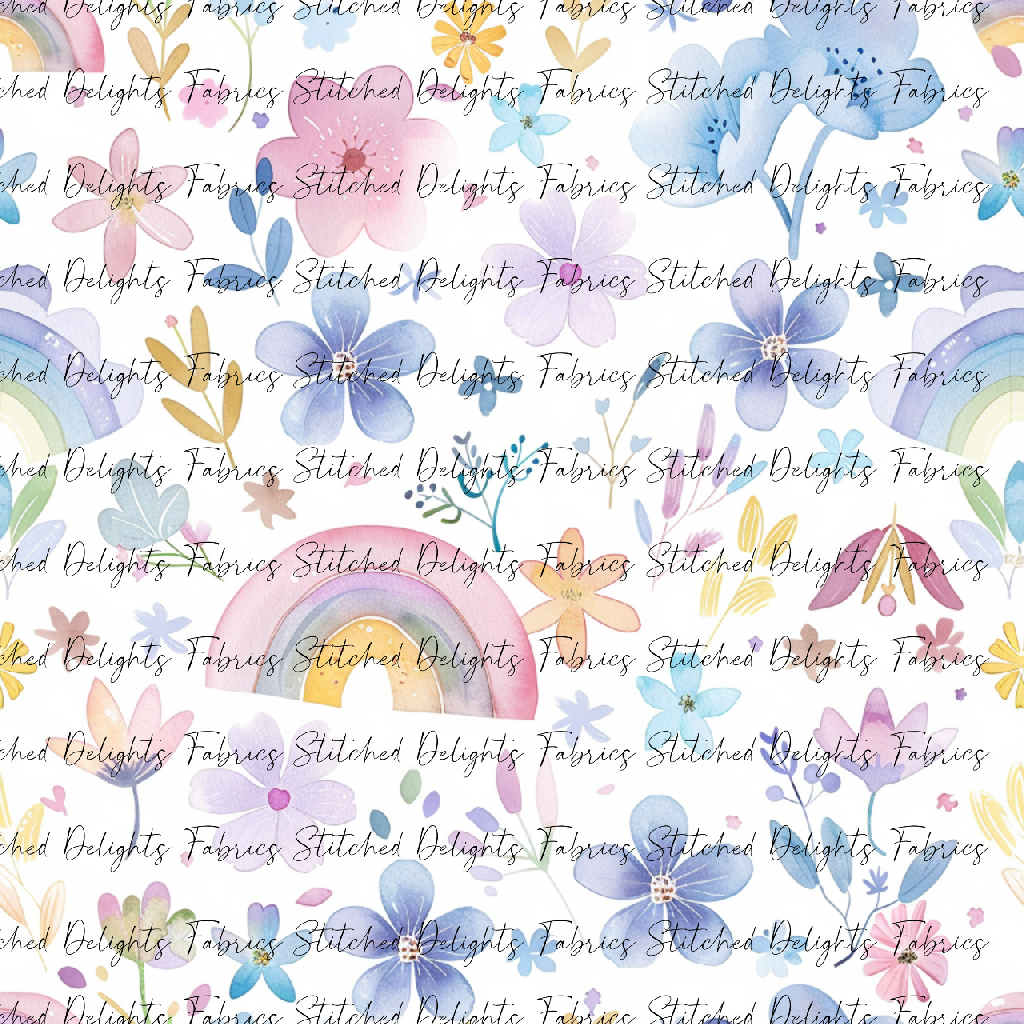 ched Delights Fabrics Stitched Delights Fabrics Stitched Delights Fabrics
ched Delights Fabrics Stitched Delights Fabrics Stitched Delights Fabrics
ched Delights Fabrics Stitched Delights Fabrics Stitched Delights Fabrics
ched Delights Fabrics Stitched Delights Fabrics Stitched Delights Fabrics
ched Delights Fabrics Stitched Delights Fabrics Stitched Delights Fabrics
ched Delights Fabrics Stitched Delights Fabrics Stitched Delights Fabrics
ched Delights Fabrics Stitched Delights Fabrics Stitched Delights Fabrics
ched Delights Fabrics Stitched Delights Fabrics Stitched Delights Fabrics
ched Delights Fabrics Stitched Delights Fabrics Stitched Delights Fabrics
ched Delights Fabrics Stitched Delights Fabrics Stitched Delights Fabrics
ched Delights Fabrics Stitched Delights Fabrics Stitched Delights Fabrics
ched Delights Fabrics Stitched Delights Fabrics Stitched Delights Fabrics